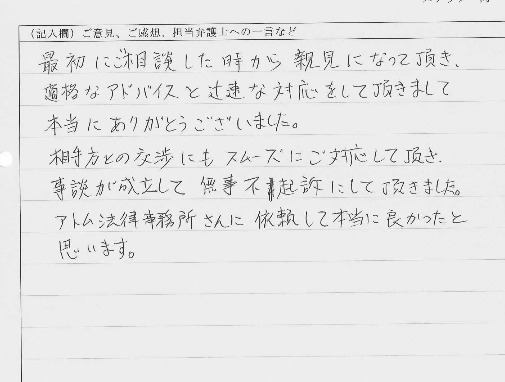 (記入欄)ご意見、ご感想、担当弁護士への一言など
最初にご相談した時から親見になって頂き、
適格なアドバイスと迅速な対応をして頂きまして
本当にありがとうございました。
相手方との交渉にもスムーズにご対応して頂き、
事談が成立して無事不起訴にして頂きました。
アトム法律事務所さんに依頼して本当に良かったと
思います。